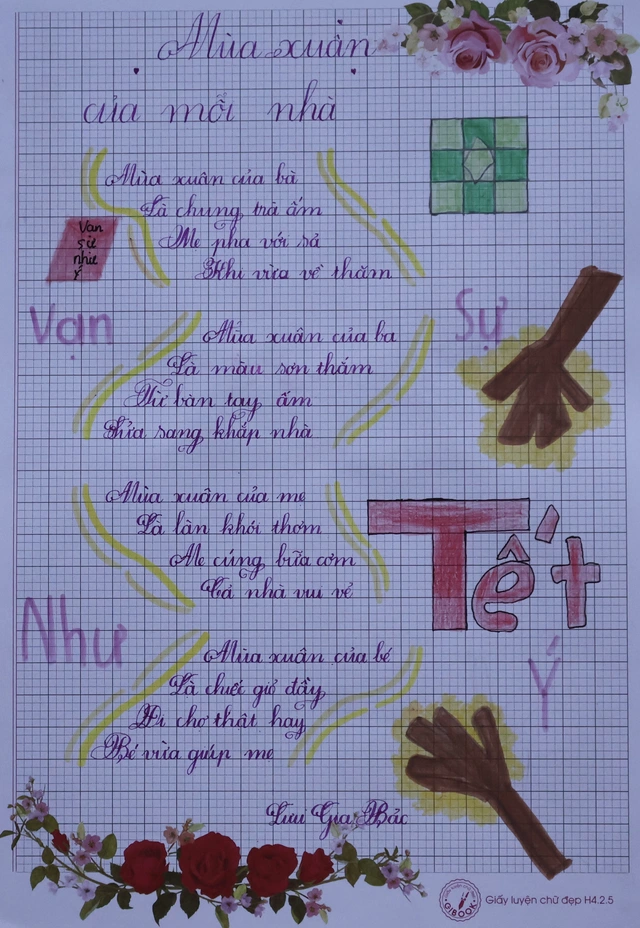 Mùa xuân
của mỗi nhà
Mùa xuân của bà
Là chung trà ấm
Mẹ pha với sả
Khi vừa về thăm
Vạn
sự
như
ý
Vạn
Sự
Mùa xuân của ba
Là màu sơn thắm
Từ bàn tay ấm
Sửa sang khắp nhà
Mùa xuân của mẹ
Là làn khói thơm
Mẹ cúng bữa cơm
Cả nhà vui vẻ
Tết
Như
Ý
Mùa xuân của bé
Là chiếc giỏ đầy
Đi chợ thật hay
Bé vừa giúp mẹ
Lưu Gia Bảo
GIBOOK
Giấy luyện chữ đẹp H4.2.5